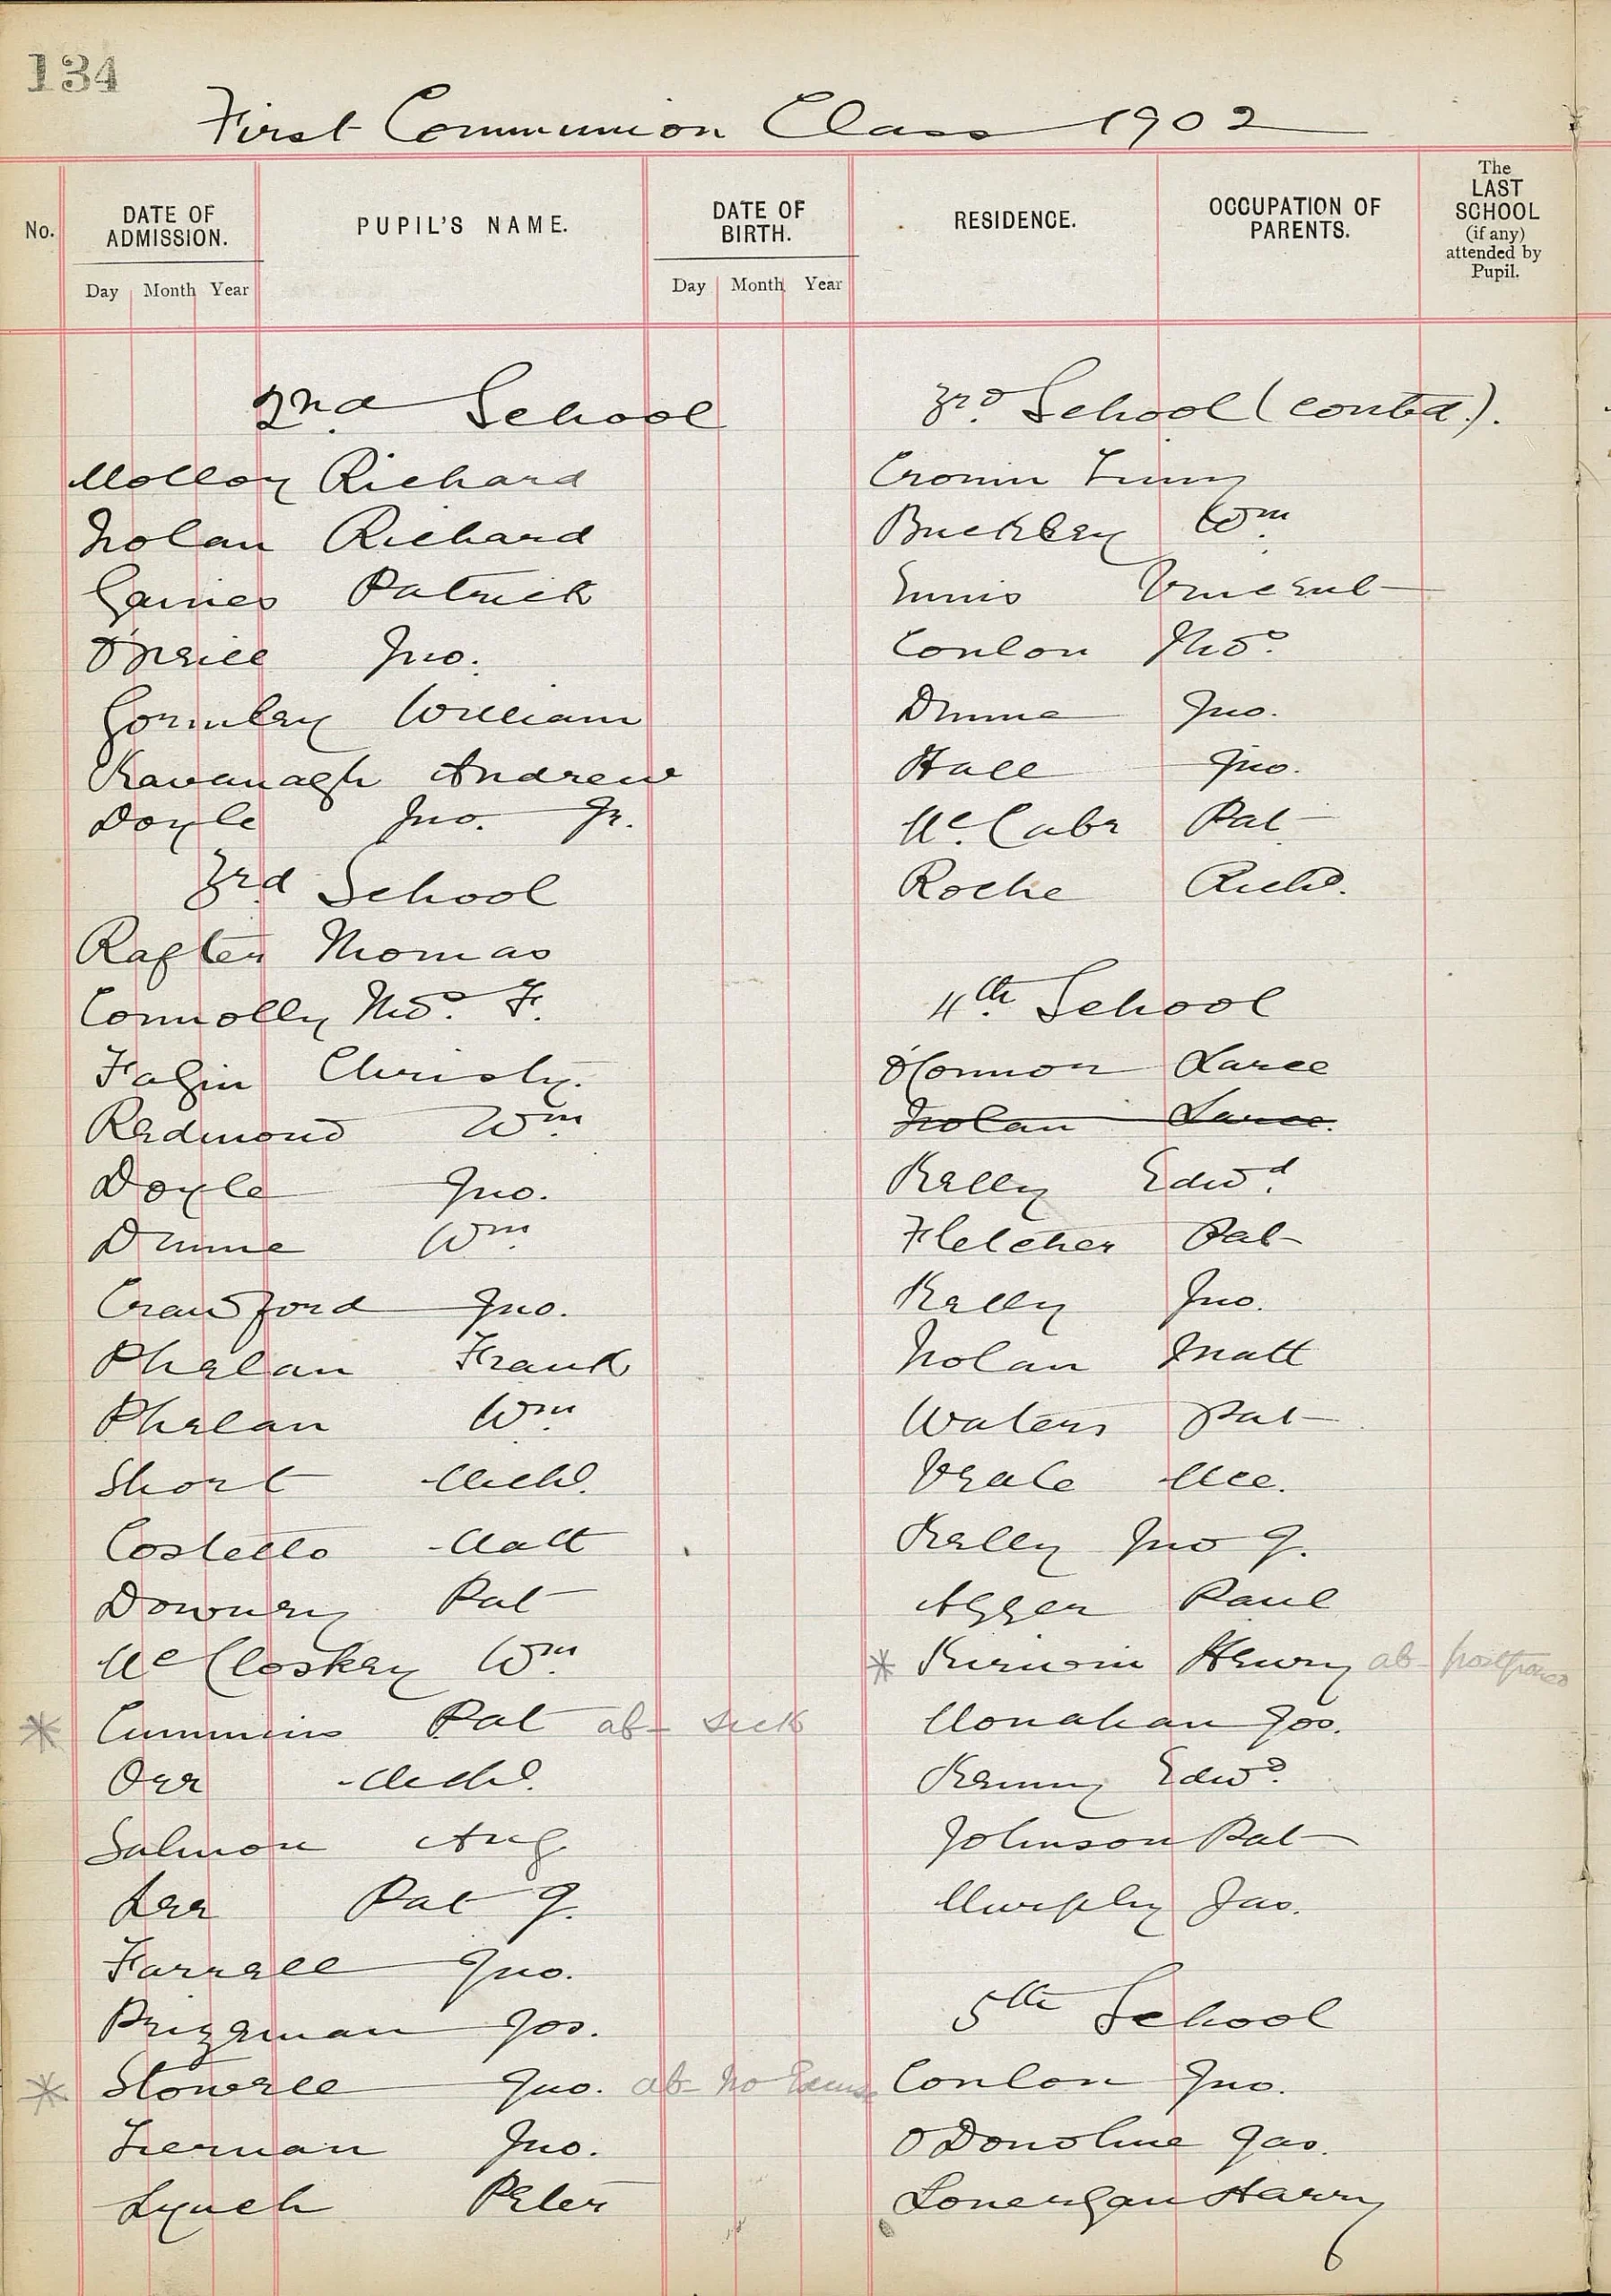 134
First Communion Class 1902
No.
DATE OF ADMISSION.
Day Month Year
PUPIL'S NAME.
DATE OF BIRTH.
Day Month Year
RESIDENCE.
OCCUPATION OF PARENTS.
The LAST SCHOOL (if any) attended by Pupil.
2nd School
Molloy Richard
Nolan Richard
Gaines Patrick
O'Neill Jno.
Gormley William
Kavanagh Andrew
Doyle Jno. Jr.
3rd School
Rafter Thomas
Connolly Thos. F.
Fagin Christy.
Redmond Wm.
Doyle Jno.
Dunne Wm.
Crawford Jno.
Phelan Frank
Phelan Wm.
Short Michl.
Costello Matt
Downey Pat
McCloskey Wm.
* Cummins Pat ab- sick
Orr Michl.
Salmon Aug
Lee Pat J.
Farrell Jno.
Prizeman Jos.
* Stowell Jno. ab- no Excuse
Tiernan Jno.
Lynch Peter
3rd School (contd.).
Cronin Timy
Buckley Wm.
Ennis Vincent
Conlon Thos.
Dunne Jno.
Hall Jno.
McCabe Pat
Roche Richd.
4th School
O'Connor Larce
Nolan Larce.
Kelly Edwd.
Fletcher Pat
Kelly Jno.
Nolan Matt
Waters Pat
Veale Mce.
Kelly Jno J.
Agger Paul
* Kirwin Henry ab-
Monahan Jos.
Kenny Edwd.
Johnson Pat
Murphy Jas.
5th School
Conlon Jno.
O'Donohue Jas.
Lonergan Harry
6